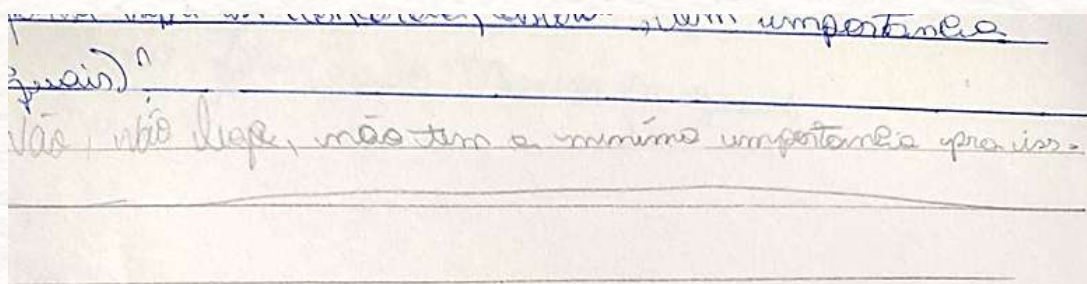 , tem importância
iguais)?
Não, não liga, não tem a minima importancia pra isso